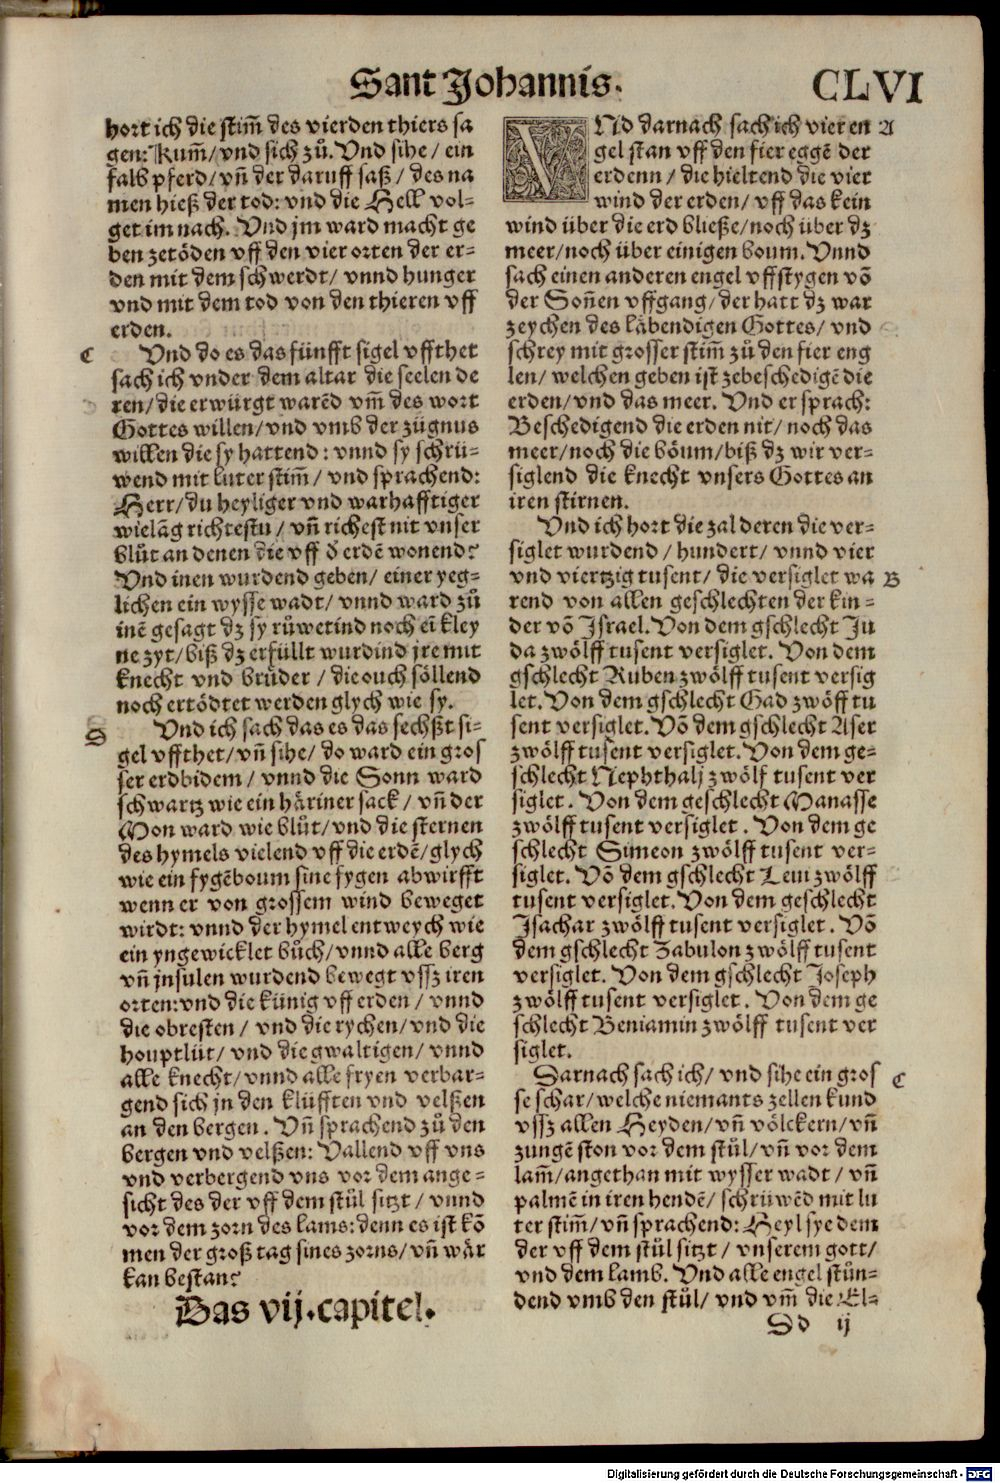 Sant Johannis.
CLVI
hort ich die stim̄ des vierden thiers sa
gen: Kum̄/ vnd sich zů. Vnd sihe/ ein
falb pferd/ vn̄ der daruff saß/ des na
men hieß der tod: vnd die Hell vol-
get im nach. Vnd jm ward macht ge
ben zetöden vff den vier orten der er-
den mit dem schwerdt/ vnnd hunger
vnd mit dem tod von den thieren vff
erden.
C
Vnd do es das fünfft sigel vffthet
sach ich vnder dem altar die seelen de
ren/ die erwürgt warēd vm̄ des wort
Gottes willen/ vnd vmb der zügnus
willen die sy hattend: vnnd sy schrü-
wend mit luter stim̄/ vnd sprachend:
Herr/ du heyliger vnd warhafftiger
wielāg richtestu/ vn̄ richest nit vnser
blůt an denen die vff d̄ erdē wonend?
Vnd inen wurdend geben/ einer yeg-
lichen ein wysse wadt/ vnnd ward zů
inē gesagt dz sy růwetind noch eī kley
ne zyt/ biß dz erfüllt wurdind jre mit
knecht vnd brůder/ die ouch söllend
noch ertödtet werden glych wie sy.
D
Vnd ich sach das es das sechßt si-
gel vffthet/ vn̄ sihe/ do ward ein gros
ser erdbidem/ vnnd die Sonn ward
schwartz wie ein häriner sack/ vn̄ der
Mon ward wie blůt/ vnd die sternen
des hymels vielend vff die erdē/ glych
wie ein fygēboum sine fygen abwirfft
wenn er von grossem wind beweget
wirdt: vnnd der hymel entweych wie
ein yngewicklet bůch/ vnnd alle berg
vn̄ jnsulen wurdend bewegt vssz iren
orten: vnd die künig vff erden/ vnnd
die obresten/ vnd die rychen/ vnd die
houptlüt/ vnd die gwaltigen/ vnnd
alle knecht/ vnnd alle fryen verbar-
gend sich jn den klüfften vnd velßen
an den bergen. Vn̄ sprachend zů den
bergen vnd velßen: Vallend vff vns
vnd verbergend vns vor dem ange-
sicht des der vff dem stůl sitzt/ vnnd
vor dem zorn des lams: denn es ist kō
men der groß tag sines zorns/ vn̄ wär
kan bestan?
Das vij. capitel.
VNd darnach sach ich vier en A
gel stan vff den fier eggē der
erdenn/ die hieltend die vier
wind der erden/ vff das kein
wind über die erd bließe/ noch über dz
meer/ noch über einigen boum. Vnnd
sach einen anderen engel vffstygen vō
der Son̄en vffgang/ der hatt dz war
zeychen des läbendigen Gottes/ vnd
schrey mit grosser stim̄ zů den fier eng
len/ welchen geben ist zebeschedigē die
erden/ vnd das meer. Vnd er sprach:
Beschedigend die erden nit/ noch das
meer/ noch die böum/ biß dz wir ver-
siglend die knecht vnsers Gottes an
iren stirnen.
Vnd ich hort die zal deren die ver-
siglet wurdend/ hundert/ vnnd vier
vnd viertzig tusent/ die versiglet wa B
rend von allen geschlechten der kin-
der vō Israel. Von dem gschlecht Ju
da zwölff tusent versiglet. Von dem
gschlecht Ruben zwölff tusent versig
let. Von dem gschlecht Gad zwöff tu
sent versiglet. Vō dem gschlecht Aser
zwölff tusent versiglet. Von dem ge-
schlecht Nephthalj zwölf tusent ver
siglet. Von dem geschlecht Manasse
zwölff tusent versiglet. Von dem ge
schlecht Simeon zwölff tusent ver-
siglet. Vō dem gschlecht Leui zwölff
tusent versiglet. Von dem geschlecht
Isachar zwölff tusent versiglet. Vō
dem gschlecht Zabulon zwölff tusent
versiglet. Von dem gschlecht Joseph
zwölff tusent versiglet. Von dem ge
schlecht Beniamin zwölff tusent ver
siglet.
Darnach sach ich/ vnd sihe ein gros C
se schar/ welche niemants zellen kund
vssz allen Heyden/ vn̄ völckern/ vn̄
zungē ston vor dem stůl/ vn̄ vor dem
lam̄/ angethan mit wysser wadt/ vn̄
palmē in iren hendē/ schrüwēd mit lu
ter stim̄/ vn̄ sprachend: Heyl sye dem
der vff dem stůl sitzt/ vnserem gott/
vnd dem lamb. Vnd alle engel stůn-
dend vmb den stůl/ vnd vm̄ die El-
Dd ij
Digitalisierung gefördert durch die Deutsche Forschungsgemeinschaft - DFG